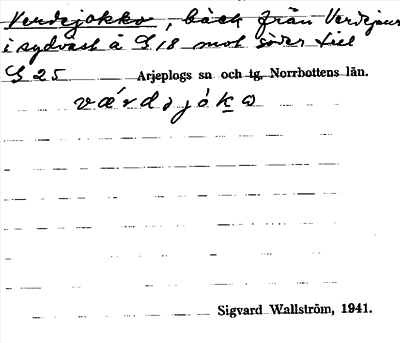 Verdejokko, bäck från Verdejaur
i sydväst å G 18 mot söder till
G 25 Arjeplogs sn och tg, Norrbottens län.
værdəjåkə
Sigvard Wallström, 1941.